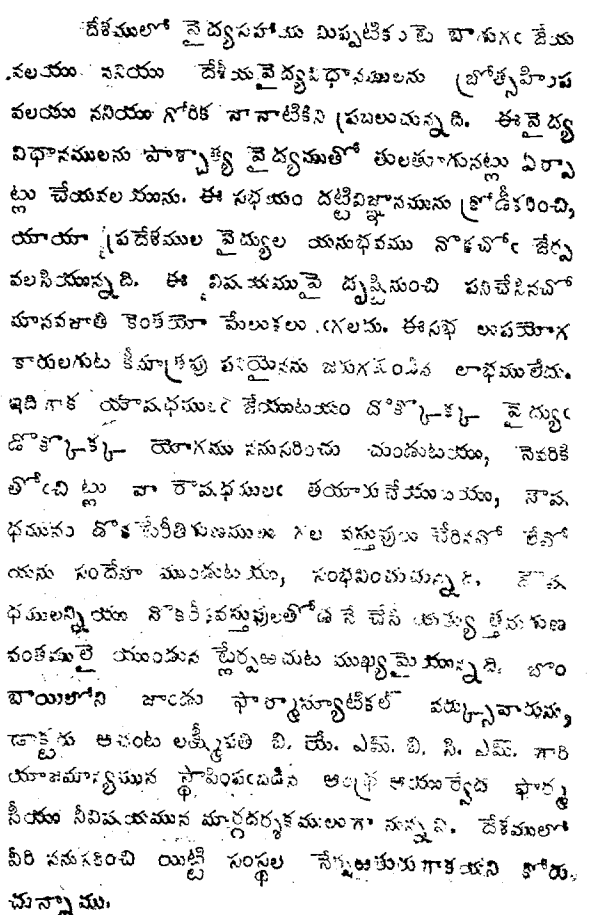 దేశములో వైద్యసహాయ మిప్పటికంటె బాగుగఁ జేయ
వలయు ననియు దేశీయవైద్యవిధానములను బ్రోత్సహింప
వలయు ననియు గోరిక నానాటికిని బ్రబలుచున్నది. ఈ వైద్య
విధానములను పాశ్చాత్య వైద్యముతో తులతూగునట్లు ఏర్పా
ట్లు చేయవలయును. ఈ సభయం దట్టివిజ్ఞానమును క్రోడీకరించి,
యాయా ప్రదేశముల వైద్యుల యనుభవము నొకచోఁ జేర్ప
వలసియున్నది. ఈ విషయమువై దృష్టినుంచి పనిచేసినచో
మానవజాతి కెంతయో మేలుకలుఁగగలదు. ఈసభ లుపయోగ
కారులగుట కీమాత్రపు పనియైనను జరుగకుండిన లాభములేదు.
ఇదిగాక యౌషధములఁ జేయుటయం దొక్కొక్క వైద్యుఁ
డొక్కొక్క యోగము ననుసరించు చుండుటయు, నెవరికి
తోఁచినట్లు వా రౌషధములఁ తయారుచేయుటయు, నౌష
ధమును డొకేరీతిగుణములు గల వస్తువులు చేరినవో లేవో
యను సందేహ ముండుటయు, సంభవించుచున్నది. ఔష
ధములన్నియు నొకేరీతివస్తువులతోడనే చేసి యత్యుత్తమగుణ
వంతములై యుండున ట్లేర్పఱచుట ముఖ్యమై యున్నది. బొం
బాయిలోని జాండు ఫార్మాస్యూటికల్ వర్క్సువారును,
డాక్టరు ఆచంట లక్ష్మీపతి బి. యే. ఎమ్. బి. సి. ఎమ్. గారి
యాజమాన్యమున స్థాపింపఁబడిన ఆంధ్ర ఆయుర్వేద ఫార్మ
సీయు నీవిషయమున మార్గదర్శకములుగా నున్నవి. దేశములో
వీరి ననుసరించి యిట్టి సంస్థల నేర్పఱతురుగాకయని కోరు
చున్నాము.